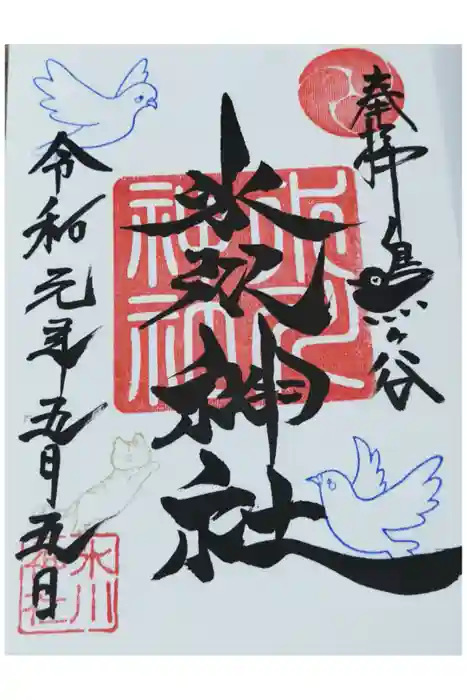 奉拝 鳩ヶ谷
氷川神社
令和元年五月五日
氷川
神社
氷川
神社